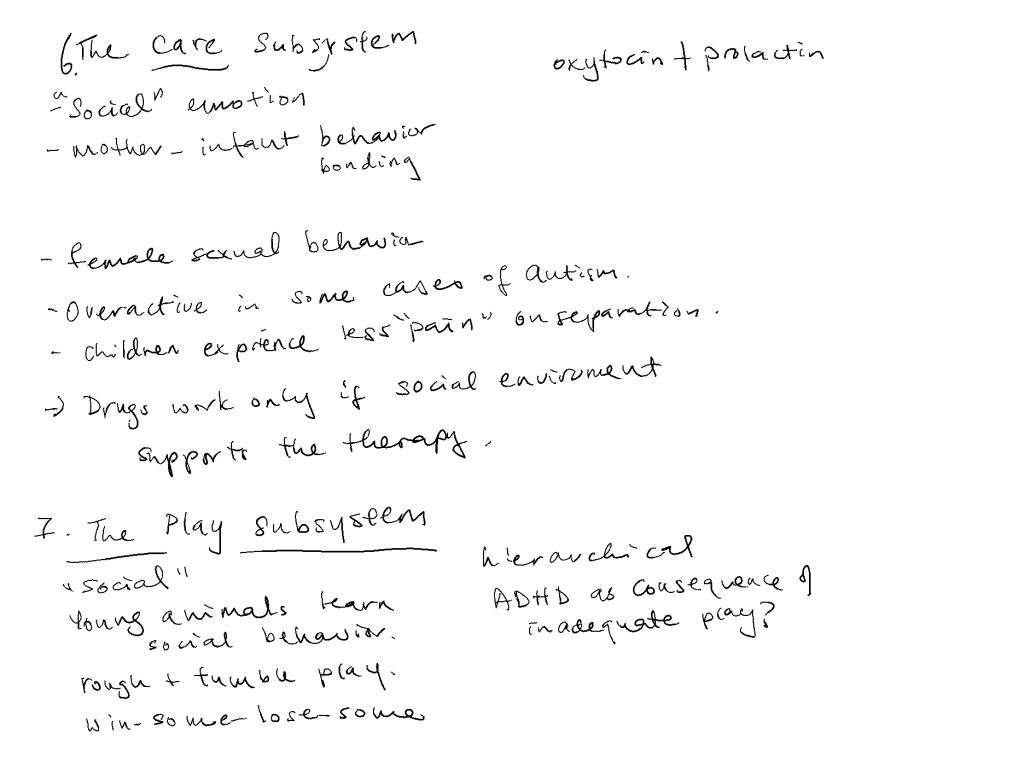 6. The Care Subsystem
oxytocin + prolactin
- "Social" emotion
- mother - infant behavior
bonding
- female sexual behavior
- Overactive in some cases of Autism.
- children exprience less "pain" on separation.
→ Drugs work only if social enviroment
supports the therapy.
7. The Play Subsystem
"social"
Young animals learn
social behavior.
rough + tumble play.
win-some-lose-some
hierarchical
ADHD as consequence of
inadequate play?